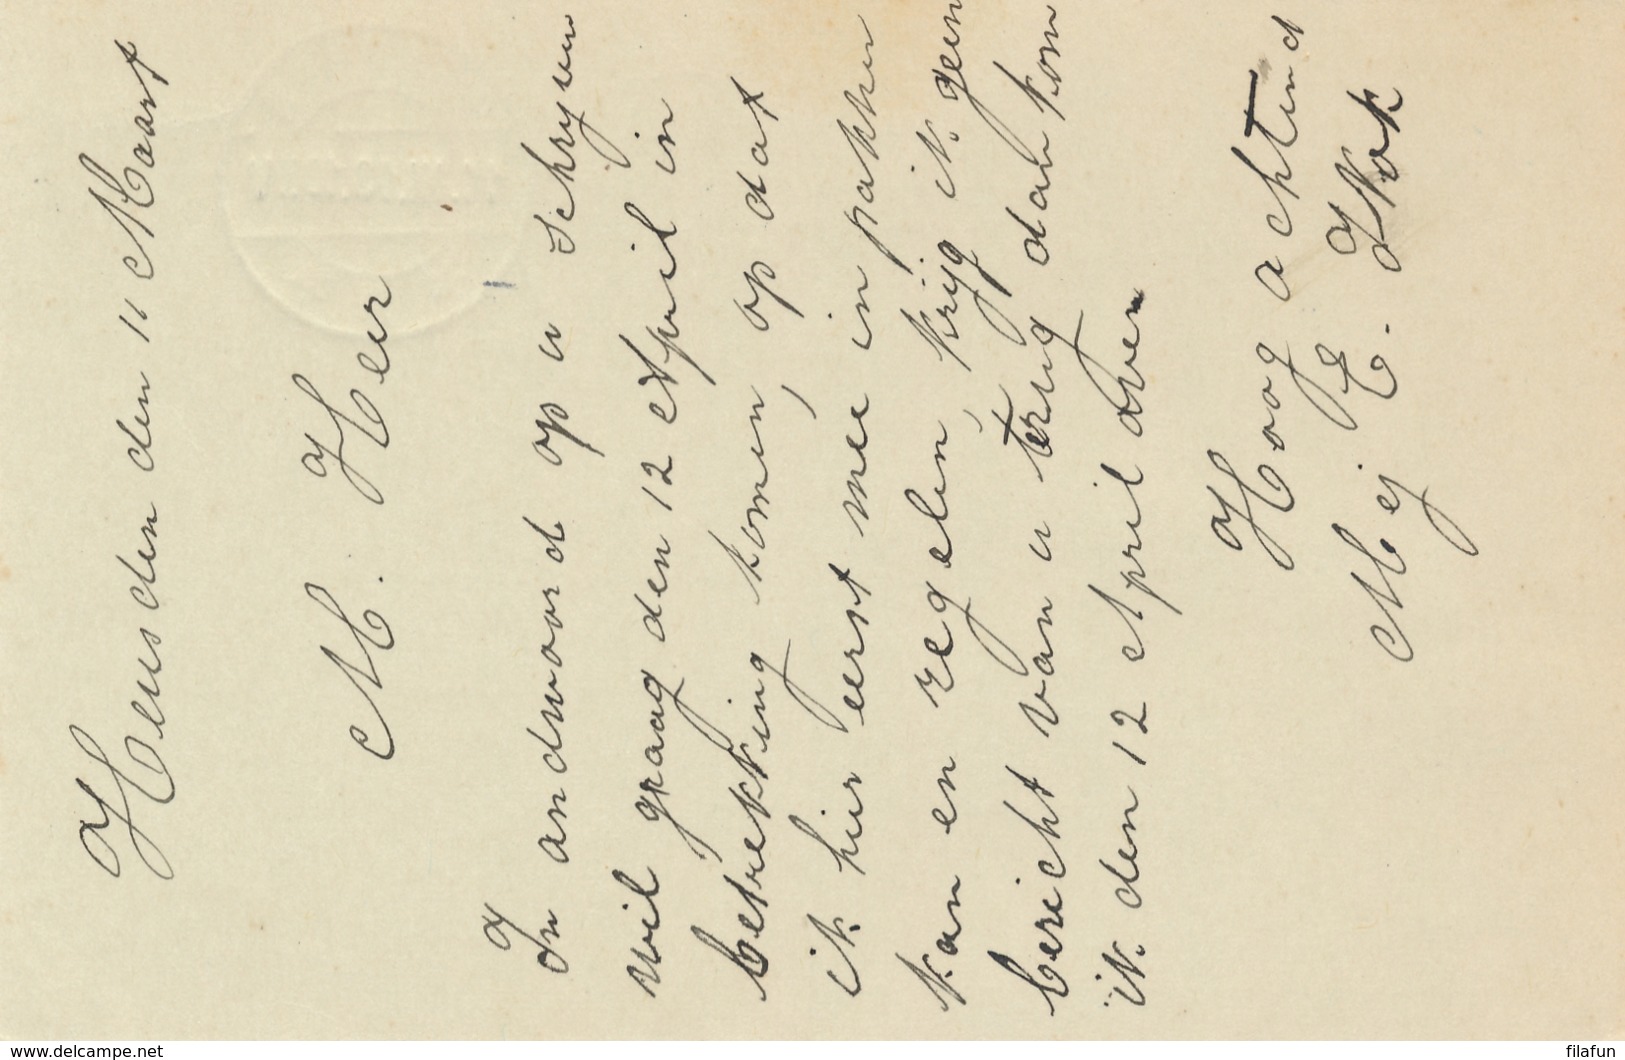 Heusden den 11 Maart
M. Heer
In andwoord op u schryven
wil graag den 12 April in
betrekking komen, op dat
ik hier eerst mee in pakken
kan en regelen, krijg ik geen
bericht van u terug dan kom
ik den 12 April over
Hoog achtend
Mej E. Kok
www.delcampe.net
filafun